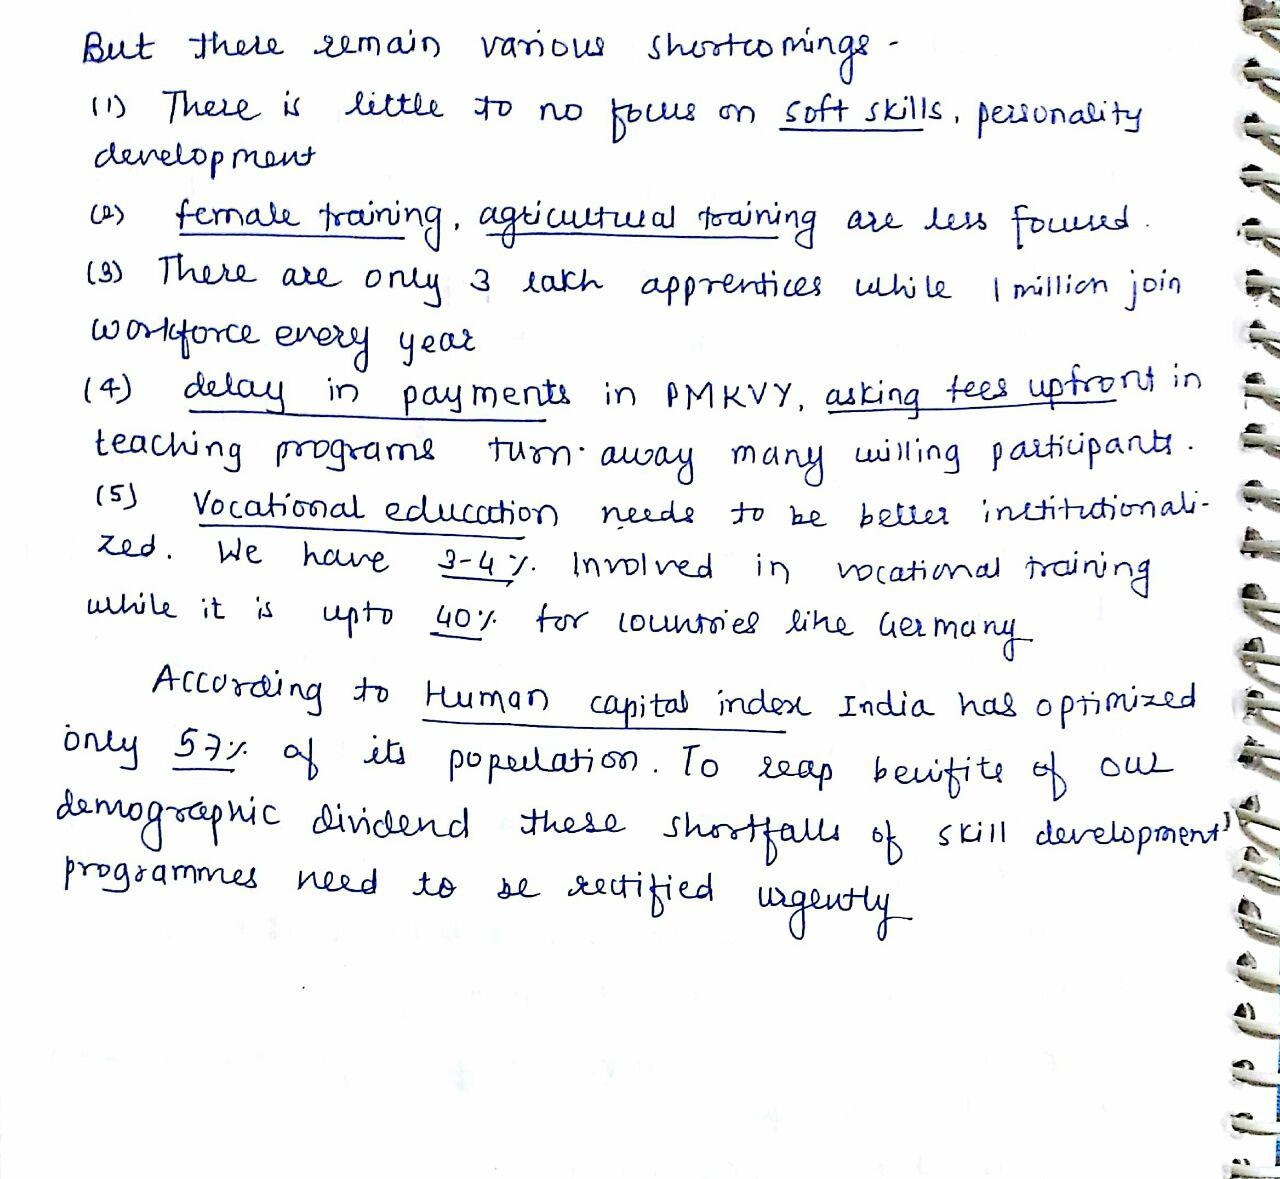 But there remain various shortcomings -
(1) There is little to no focus on soft skills, personality
development
(2) female training, agricultural training are less focused.
(3) There are only 3 lakh apprentices while 1 million join
workforce every year
(4) delay in payments in PMKVY, asking fees upfront in
teaching programs turn away many willing participants.
(5) Vocational education needs to be better institutionali-
zed. We have 3-4% Involved in vocational training
while it is upto 40% for countries like Germany
According to Human capital index India has optimized
only 57% of its population. To reap benifits of our
demographic dividend these shortfalls of skill development
programmes need to be rectified urgently